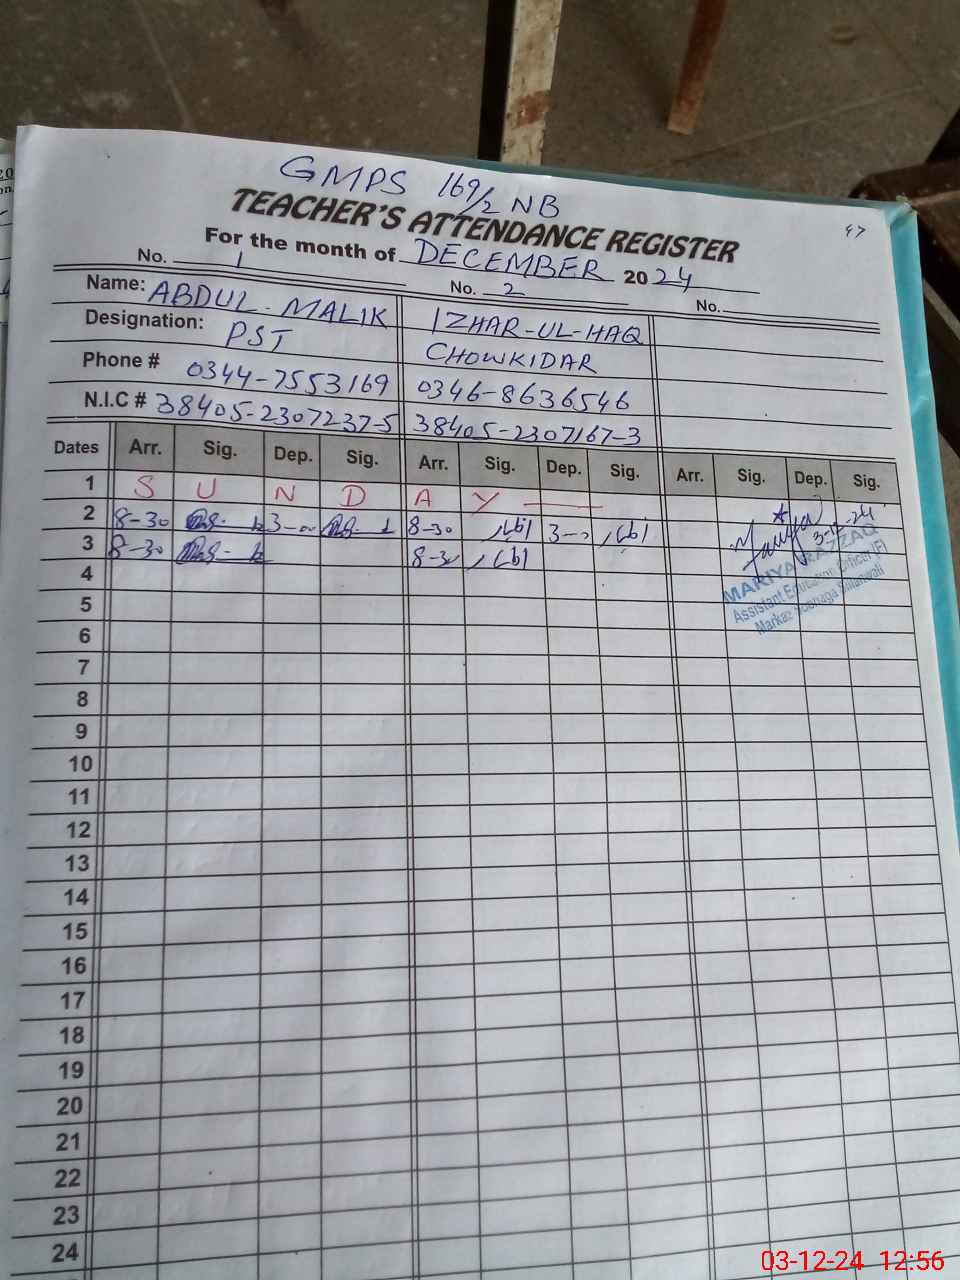 GMPS 169/2 NB
TEACHER'S ATTENDANCE REGISTER
47
For the month of DECEMBER 2024
No. 1 No. 2 No.
Name: ABDUL-MALIK IZHAR-UL-HAQ
Designation: PST CHOWKIDAR
Phone # 0344-7553169 0346-8636546
N.I.C # 38405-2307237-5 38405-2307167-3
Dates Arr. Sig. Dep. Sig. Arr. Sig. Dep. Sig. Arr. Sig. Dep. Sig.
1 S U N D A Y
2 8-30 3-00 8-30 3-00
3 8-30 8-30
3-12-24
MARIYA RAZZAQ
Assistant Education Officer (F)
Markaz
4
5
6
7
8
9
10
11
12
13
14
15
16
17
18
19
20
21
22
23
24
03-12-24 12:56